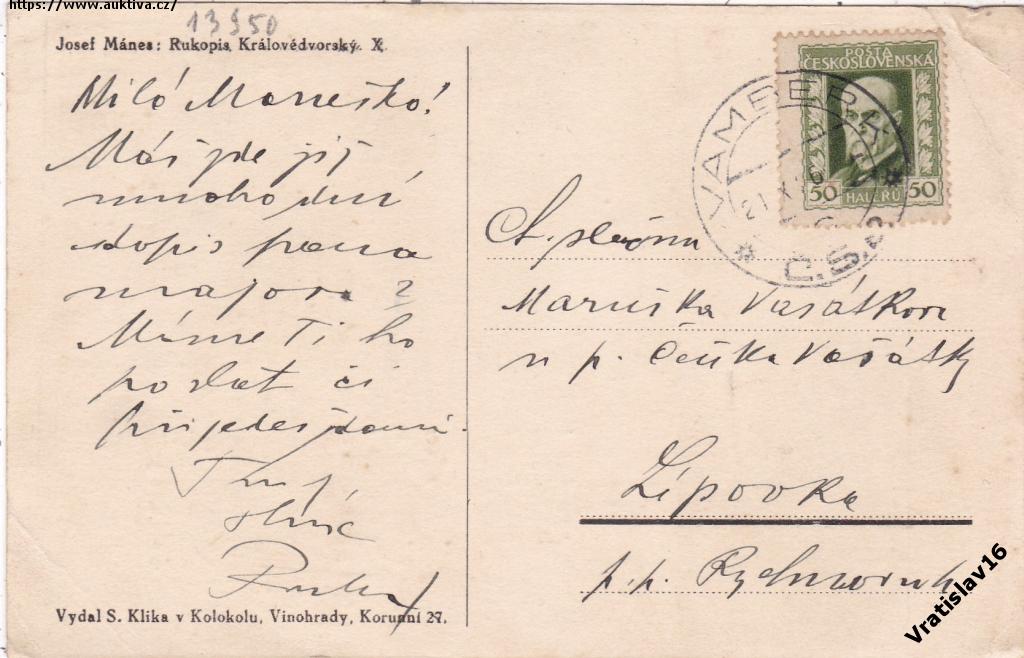 https://www.auktiva.cz/
13950
Josef Mánes: Rukopis Královédvorský. X.
Milá Maruško!
Máš zde již
mnoho dní
dopis pana
majora?
Máme Ti ho
poslat či
přijedeš domů.
Tvůj
Vydal S. Klika v Kolokolu, Vinohrady, Korunní 27.
POŠTA
ČESKOSLOVENSKÁ
50 HALÉŘŮ 50
VAMBERK
21.X
Č.S.R.
Ct. slečna
Maruška Vašátkova
u p. Čeňka Vašátky
Lipovka
p. p. Rychnov n/K
Vratislav16